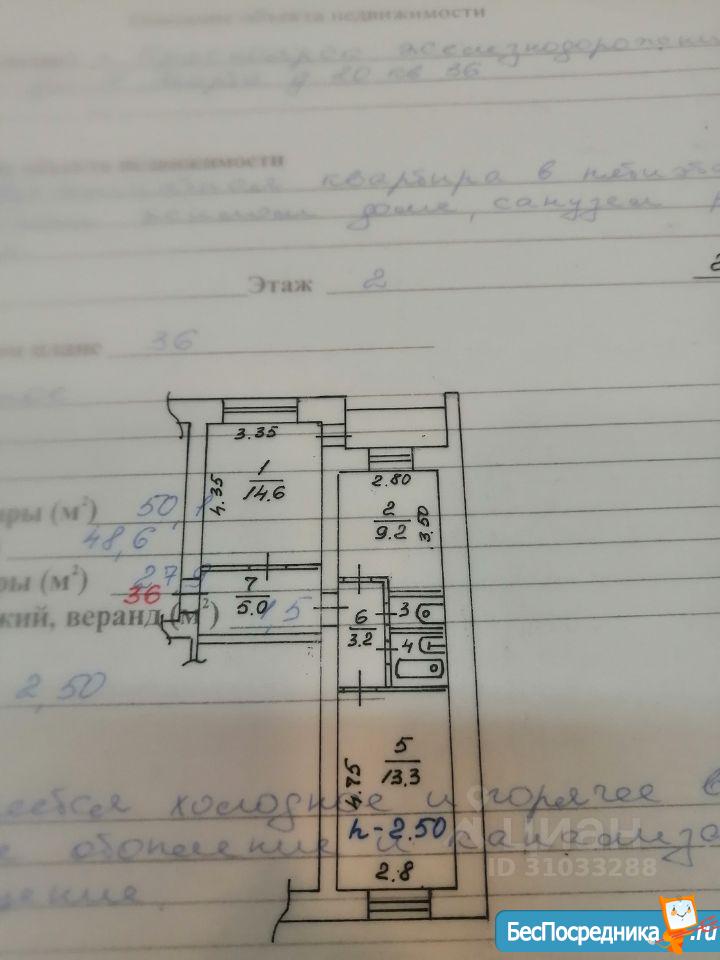 Описание объекта недвижимости
железнодорожный
д 20 кв 36
объекта недвижимости
квартира в пятиэ
доме, санузел р
Этаж 2
плане 36
3.35
1
14.6
4.35
2.80
2
9.2
3.50
ры (м²) 50,1
48,6
ры (м²) 27,9
36
7
5.0
кий, веранд (м²) 1,5
6
3.2
3
4
2,50
5
13.3
4.75
h-2.50
2.8
еется холодное и горячее в
е отопление и канализа
щение
циан
ID 31033288
БесПосредника.ru